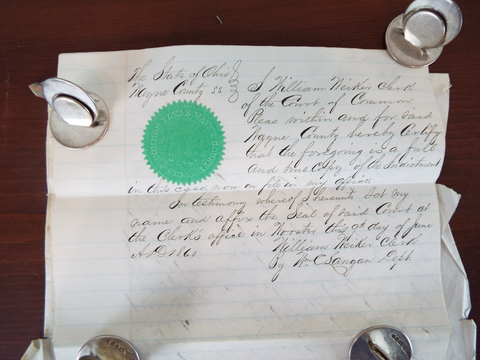 The State of Ohio
Wayne County ss
I William Neiker Clerk
of the Court of Common
Pleas within and for said
Wayne County hereby certify
that the foregoing is a full
and true copy of the Indictment
in this case, now on file in my office
In testimony whereof I hereunto set my
name and affix the Seal of said Court at
the Clerk's office in Wooster this 9th day of June
A D 1860
William Neiker Clerk
By Wm C Langan Dept